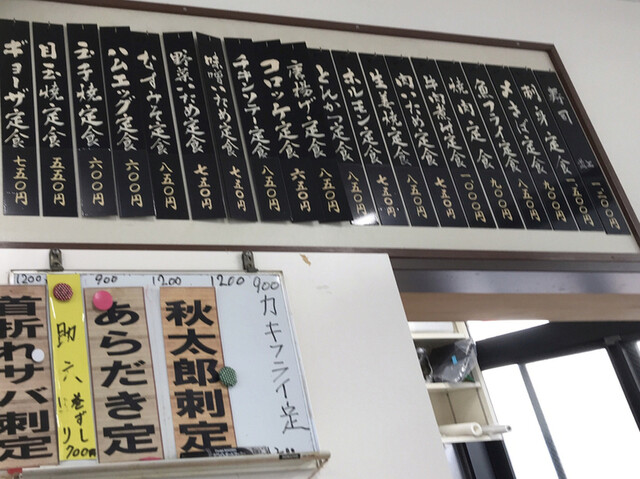 寿司
一、一〇〇円
刺身定食
九〇〇円
よきば定食
八五〇円
魚フライ定食
九〇〇円
焼肉定食
一〇〇〇円
牛肉煮付定食
七五〇円
肉いため定食
八五〇円
生姜焼定食
七五〇円
ホルモン定食
八五〇円
とんかつ定食
八五〇円
唐揚げ定食
六五〇円
コロッケ定食
八五〇円
チキンソテー定食
七五〇円
味噌いため定食
七五〇円
野菜いため定食
七五〇円
むすみそ定食
八五〇円
ハムエッグ定食
六〇〇円
玉子焼定食
六〇〇円
目玉焼定食
五五〇円
ギョーザ定食
七五〇円
900
カキフライ定
1200
秋太郎刺定
1200
あらだき定
900
助六
巻ずし
700円
1200
首折れサバ刺定